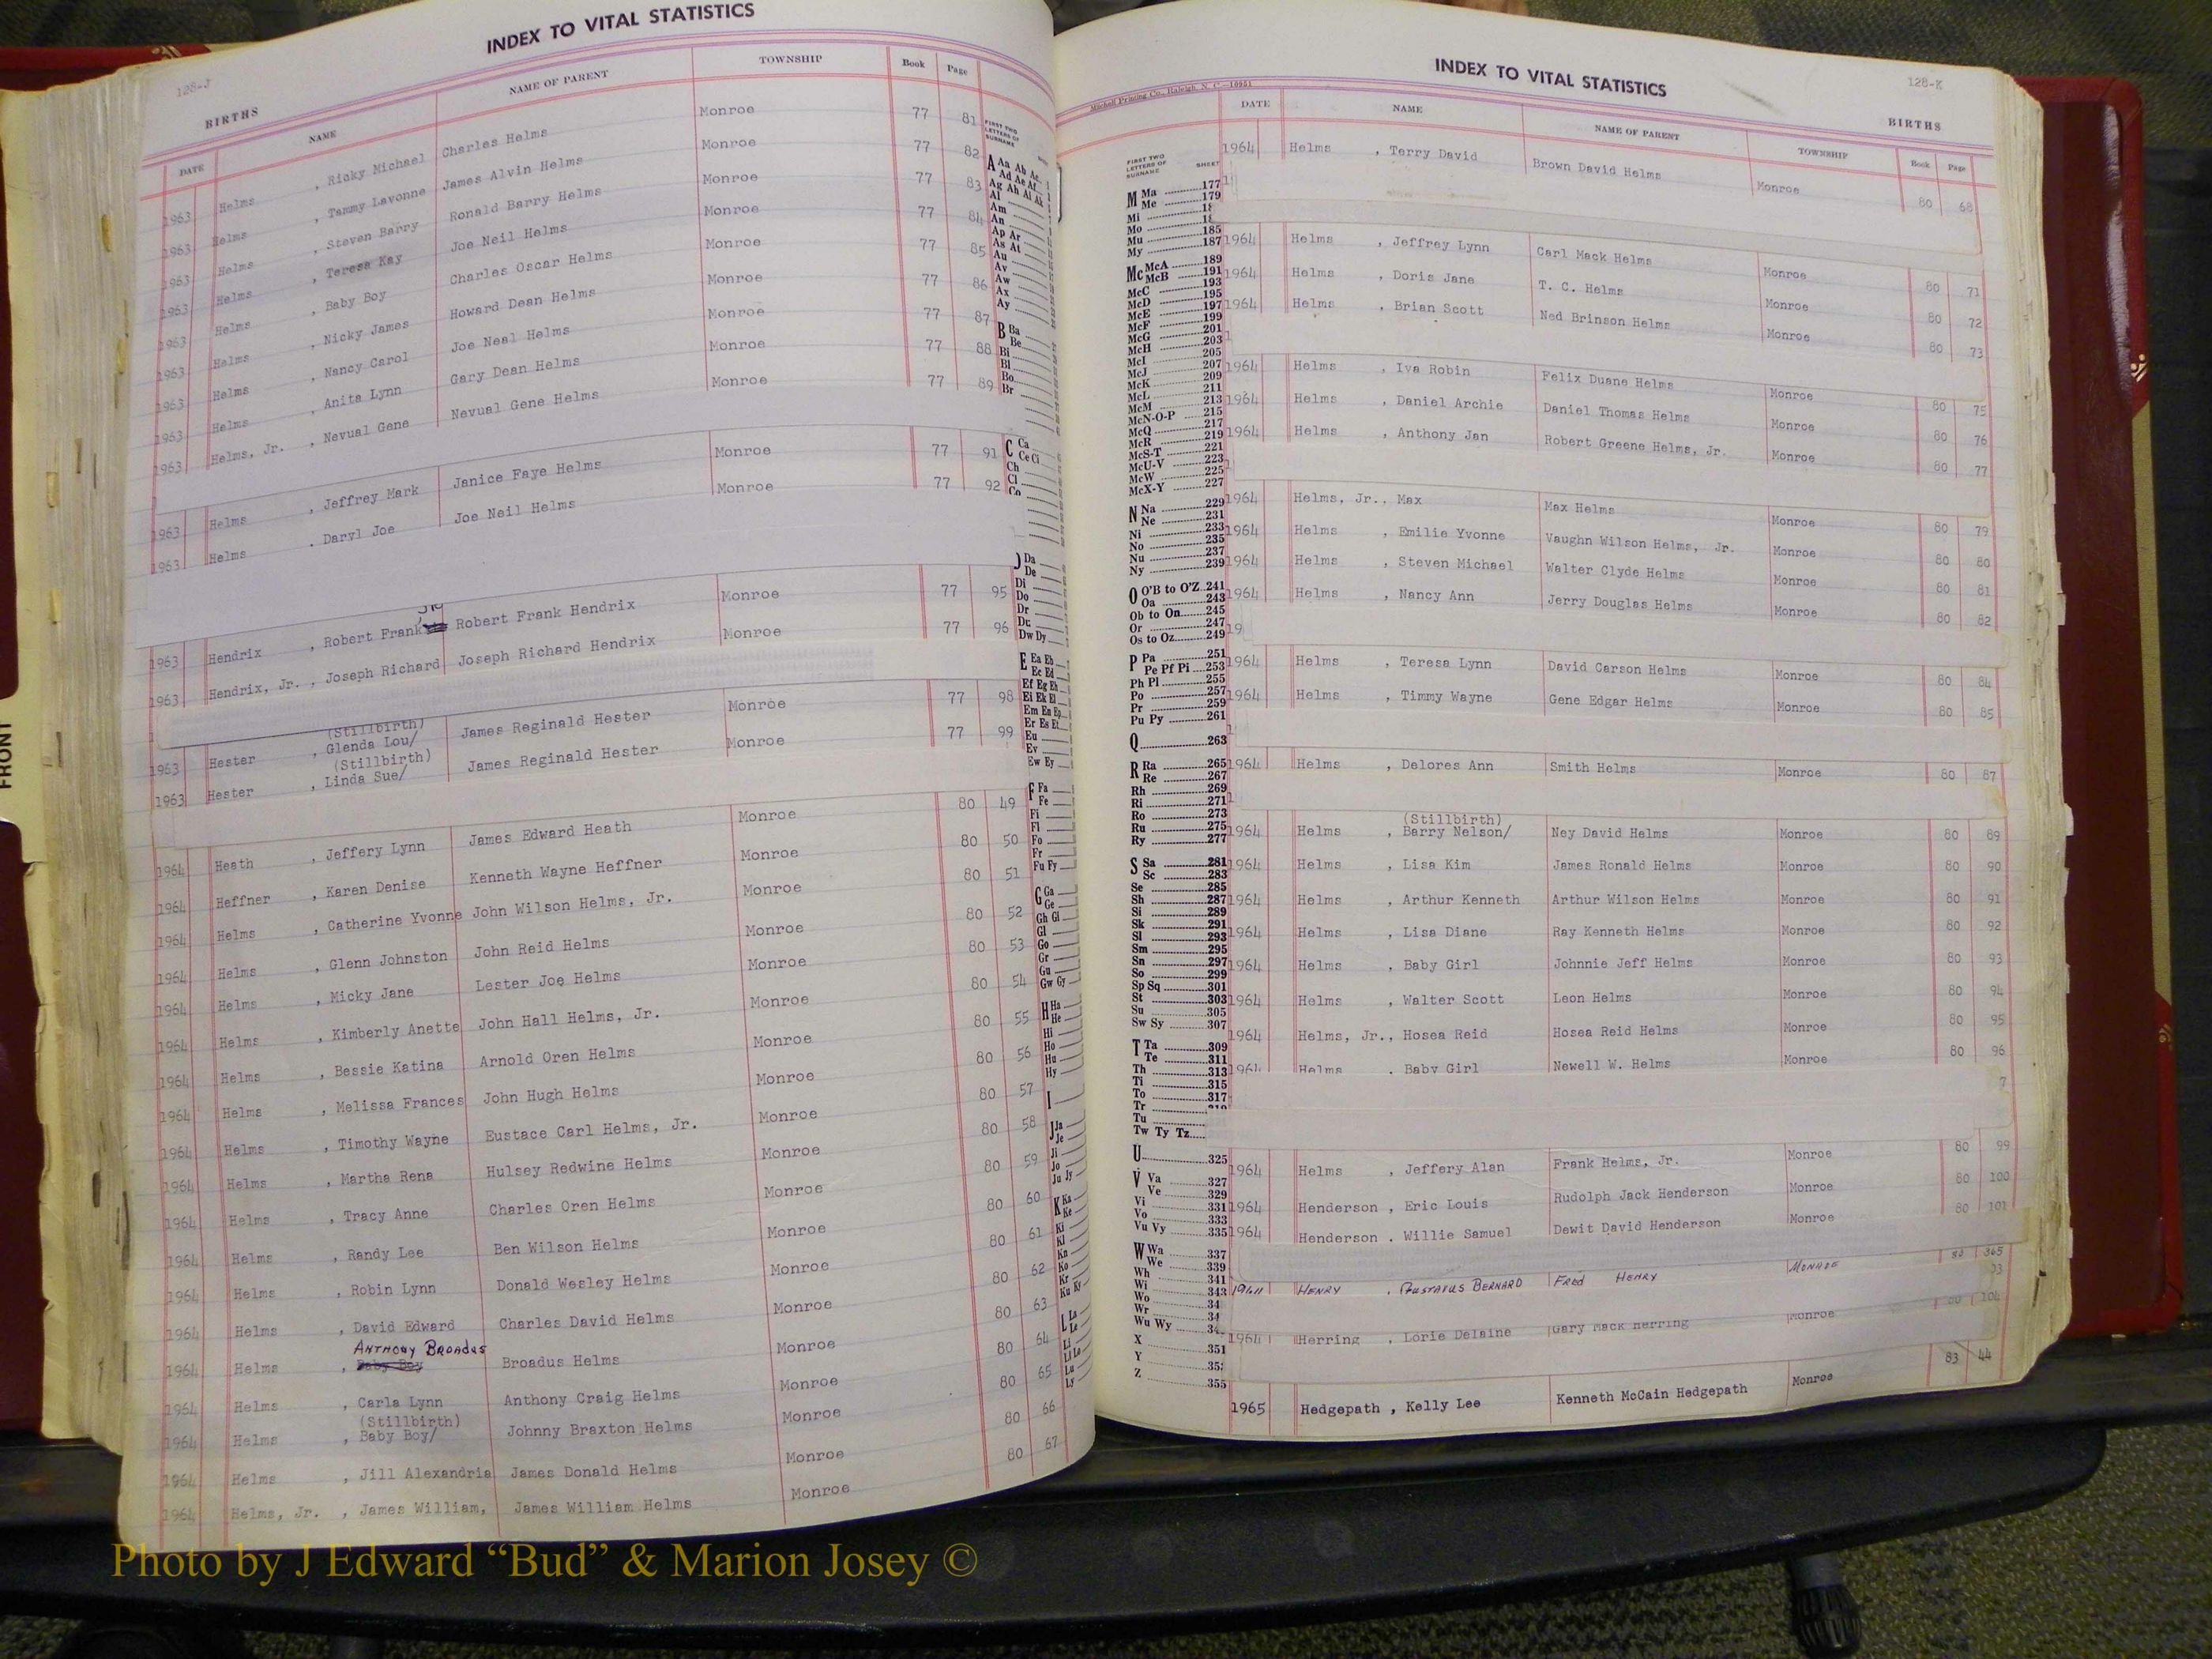 INDEX TO VITAL STATISTICS
128-J
BIRTHS
DATE NAME NAME OF PARENT TOWNSHIP Book Page
1963 Helms , Ricky Michael Charles Helms Monroe 77 81
1963 Helms , Tammy Lavonne James Alvin Helms Monroe 77 82
1963 Helms , Steven Barry Ronald Barry Helms Monroe 77 83
1963 Helms , Teresa Kay Joe Neil Helms Monroe 77 84
1963 Helms , Baby Boy Charles Oscar Helms Monroe 77 85
1963 Helms , Nicky James Howard Dean Helms Monroe 77 86
1963 Helms , Nancy Carol Joe Neal Helms Monroe 77 87
1963 Helms , Anita Lynn Gary Dean Helms Monroe 77 88
1963 Helms, Jr. , Nevual Gene Nevual Gene Helms Monroe 77 89
1963 Helms , Jeffrey Mark Janice Faye Helms Monroe 77 91
1963 Helms , Daryl Joe Joe Neil Helms Monroe 77 92
1963 Hendrix , Robert Frank Robert Frank Hendrix Monroe 77 95
1963 Hendrix, Jr. , Joseph Richard Joseph Richard Hendrix Monroe 77 96
(Stillbirth)
1963 Hester , Glenda Lou/ James Reginald Hester Monroe 77 98
(Stillbirth)
1963 Hester , Linda Sue/ James Reginald Hester Monroe 77 99
1964 Heath , Jeffery Lynn James Edward Heath Monroe 80 49
1964 Heffner , Karen Denise Kenneth Wayne Heffner Monroe 80 50
1964 Helms , Catherine Yvonne John Wilson Helms, Jr. Monroe 80 51
1964 Helms , Glenn Johnston John Reid Helms Monroe 80 52
1964 Helms , Micky Jane Lester Joe Helms Monroe 80 53
1964 Helms , Kimberly Anette John Hall Helms, Jr. Monroe 80 54
1964 Helms , Bessie Katina Arnold Oren Helms Monroe 80 55
1964 Helms , Melissa Frances John Hugh Helms Monroe 80 56
1964 Helms , Timothy Wayne Eustace Carl Helms, Jr. Monroe 80 57
1964 Helms , Martha Rena Hulsey Redwine Helms Monroe 80 58
1964 Helms , Tracy Anne Charles Oren Helms Monroe 80 59
1964 Helms , Randy Lee Ben Wilson Helms Monroe 80 60
1964 Helms , Robin Lynn Donald Wesley Helms Monroe 80 61
1964 Helms , David Edward Charles David Helms Monroe 80 62
ANTHONY BROADUS
1964 Helms , Baby Boy Broadus Helms Monroe 80 63
1964 Helms , Carla Lynn Anthony Craig Helms Monroe 80 64
(Stillbirth)
1964 Helms , Baby Boy/ Johnny Braxton Helms Monroe 80 65
1964 Helms , Jill Alexandria James Donald Helms Monroe 80 66
1964 Helms, Jr. , James William, James William Helms Monroe 80 67
INDEX TO VITAL STATISTICS
128-K
Mitchell Printing Co., Raleigh, N. C.
BIRTHS
DATE NAME NAME OF PARENT TOWNSHIP Book Page
1964 Helms , Terry David Brown David Helms Monroe 80 68
1964 Helms , Jeffrey Lynn Carl Mack Helms Monroe 80 71
1964 Helms , Doris Jane T. C. Helms Monroe 80 72
1964 Helms , Brian Scott Ned Brinson Helms Monroe 80 73
1964 Helms , Iva Robin Felix Duane Helms Monroe 80 75
1964 Helms , Daniel Archie Daniel Thomas Helms Monroe 80 76
1964 Helms , Anthony Jan Robert Greene Helms, Jr. Monroe 80 77
1964 Helms, Jr., Max Max Helms Monroe 80 79
1964 Helms , Emilie Yvonne Vaughn Wilson Helms, Jr. Monroe 80 80
1964 Helms , Steven Michael Walter Clyde Helms Monroe 80 81
1964 Helms , Nancy Ann Jerry Douglas Helms Monroe 80 82
1964 Helms , Teresa Lynn David Carson Helms Monroe 80 84
1964 Helms , Timmy Wayne Gene Edgar Helms Monroe 80 85
1964 Helms , Delores Ann Smith Helms Monroe 80 87
(Stillbirth)
1964 Helms , Barry Nelson/ Ney David Helms Monroe 80 89
1964 Helms , Lisa Kim James Ronald Helms Monroe 80 90
1964 Helms , Arthur Kenneth Arthur Wilson Helms Monroe 80 91
1964 Helms , Lisa Diane Ray Kenneth Helms Monroe 80 92
1964 Helms , Baby Girl Johnnie Jeff Helms Monroe 80 93
1964 Helms , Walter Scott Leon Helms Monroe 80 94
1964 Helms, Jr., Hosea Reid Hosea Reid Helms Monroe 80 95
1964 Helms , Baby Girl Newell W. Helms Monroe 80 96
1964 Helms , Jeffery Alan Frank Helms, Jr. Monroe 80 99
1964 Henderson , Eric Louis Rudolph Jack Henderson Monroe 80 100
1964 Henderson , Willie Samuel Dewit David Henderson Monroe 80 101
HENRY , GUSTAVUS BERNARD FRED HENRY MONROE 365
1964 Herring , Lorie Delaine Gary Mack Herring Monroe 80 104
1965 Hedgepath , Kelly Lee Kenneth McCain Hedgepath Monroe 83 44
FIRST TWO LETTERS OF SURNAME SHEET
M Ma 177
Me 179
Mi
Mo
Mu 185
My 187
Mc McA 189
McB 191
McC 193
McD 195
McE 197
McF 199
McG 201
McH 203
McI 205
McJ 207
McK 209
McL 211
McM 213
McN-O-P 215
McQ 217
McR 219
McS-T 221
McU-V 223
McW 225
McX-Y 227
N Na 229
Ne 231
Ni 233
No 235
Nu 237
Ny 239
O O'B to O'Z 241
Oa 243
Ob to On 245
Or 247
Os to Oz 249
P Pa 251
Pe Pf Pi 253
Ph Pl 255
Po 257
Pr 259
Pu Py 261
Q 263
R Ra 265
Re 267
Rh 269
Ri 271
Ro 273
Ru 275
Ry 277
S Sa 281
Sc 283
Se 285
Sh 287
Si 289
Sk 291
Sl 293
Sm 295
Sn 297
So 299
Sp Sq 301
St 303
Su 305
Sw Sy 307
T Ta 309
Te 311
Th 313
Ti 315
To 317
Tr
Tu
Tw Ty Tz
U 325
V Va 327
Ve 329
Vi 331
Vo 333
Vu Vy 335
W Wa 337
We 339
Wh 341
Wi 343
Wo
Wr
Wu Wy
X 351
Y
Z 355
FRONT
Photo by J Edward “Bud” & Marion Josey ©